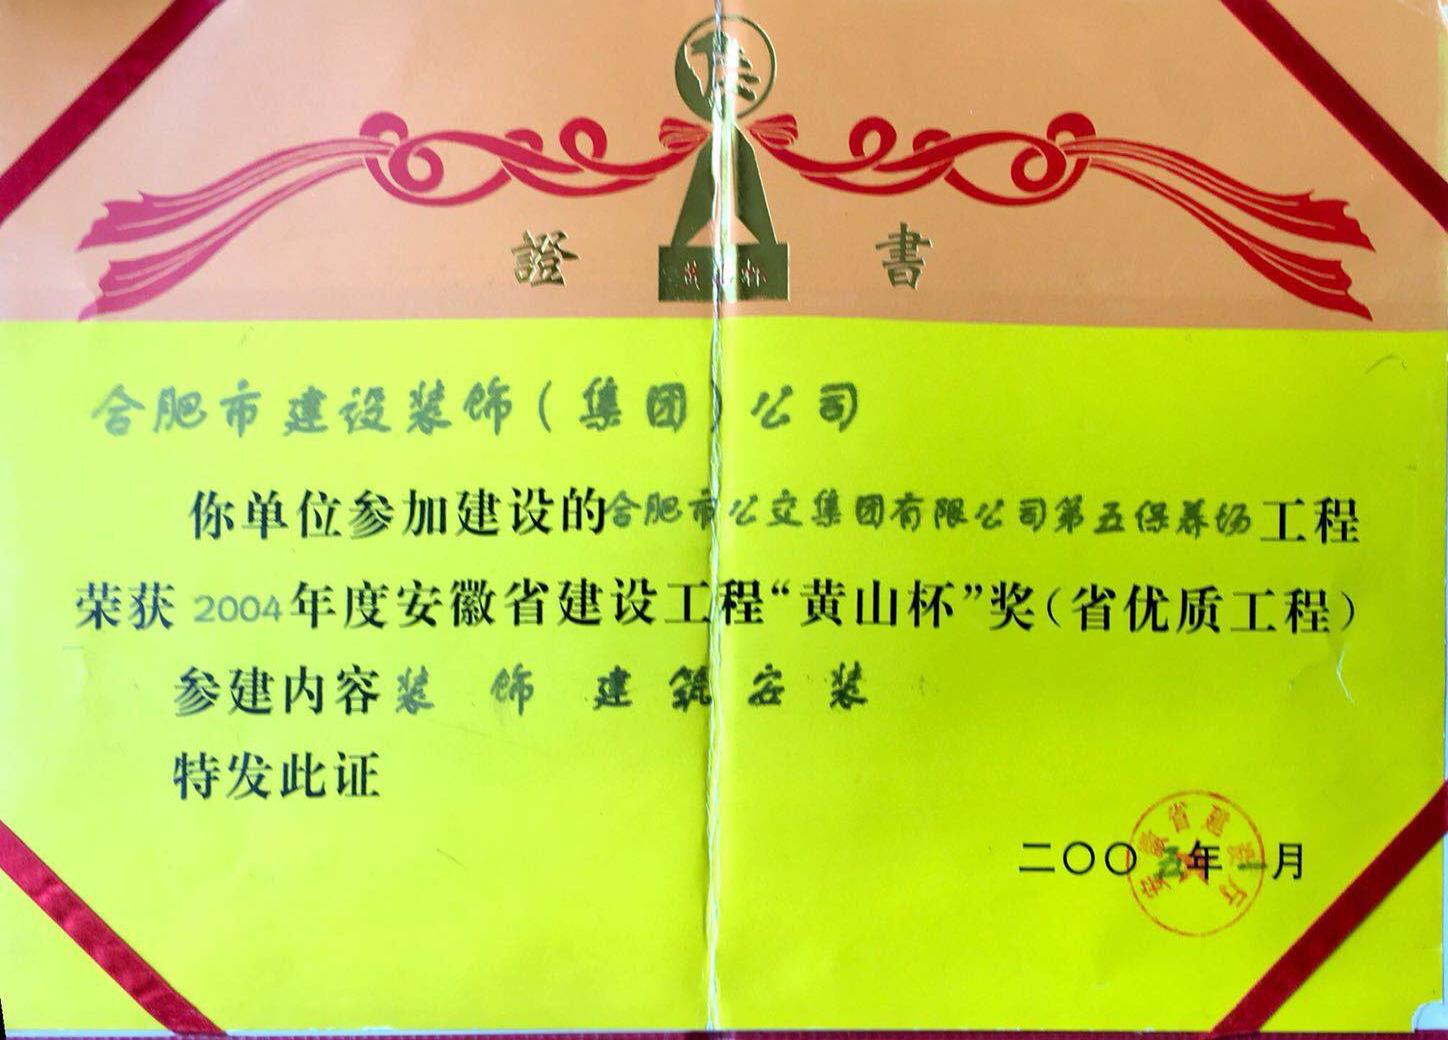 證 書
黄山杯
合肥市建设装饰（集团）公司
你单位参加建设的合肥市公交集团有限公司第五保养场工程
荣获 2004年度安徽省建设工程“黄山杯”奖（省优质工程）
参建内容装饰建筑安装
特发此证
安徽省建设厅
二〇〇五年一月